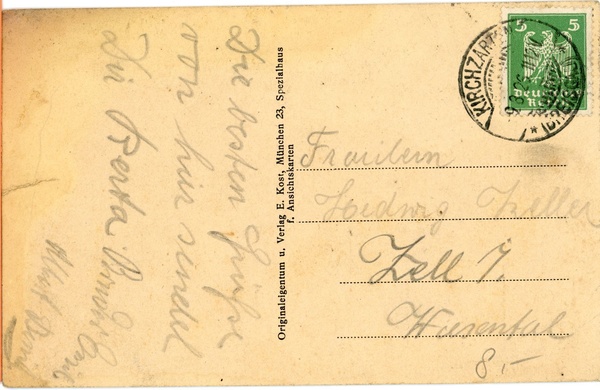 Die besten Grüße
von hier sendet
Die Berta
Originaleigentum u. Verlag E. Kost, München 23, Spezialhaus
f. Ansichtskarten
5 5
Deutsches
Reich
KIRCHZARTEN
Fräulein
Hedwig Zeller
Zell i.
Wiesental
8.-